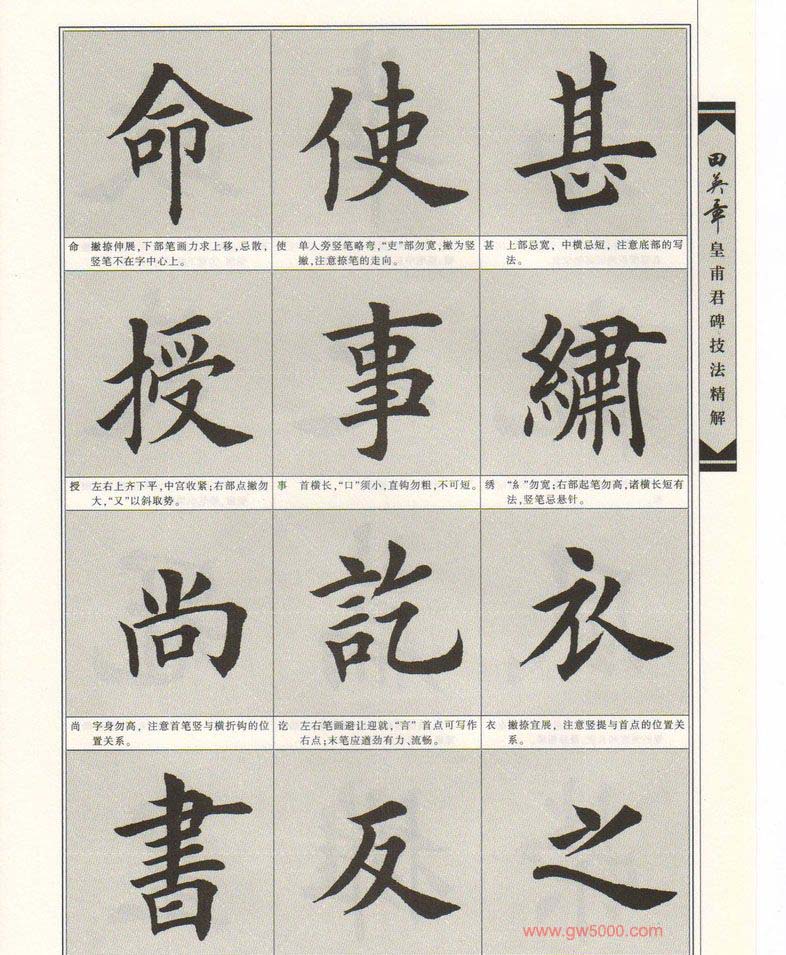 命
使
甚
命 撇捺伸展,下部笔画力求上移,忌散,
竖笔不在字中心上。
使 单人旁竖笔略弯,“吏”部勿宽,撇为竖
撇,注意捺笔的走向。
甚 上部忌宽,中横忌短,注意底部的写
法。
授
事
繡
授 左右上齐下平,中宫收紧;右部点撇勿
大,“又”以斜取势。
事 首横长,“口”须小,直钩勿粗,不可短。
绣 “糹”勿宽;右部起笔勿高,诸横长短有
法,竖笔忌悬针。
尚
訖
衣
尚 字身勿高,注意首笔竖与横折钩的位
置关系。
讫 左右笔画避让迎就,“言”首点可写作
右点;末笔应遒劲有力、流畅。
衣 撇捺宜展,注意竖提与首点的位置关
系。
書
反
之
田英章皇甫君碑技法精解
www.gw5000.com